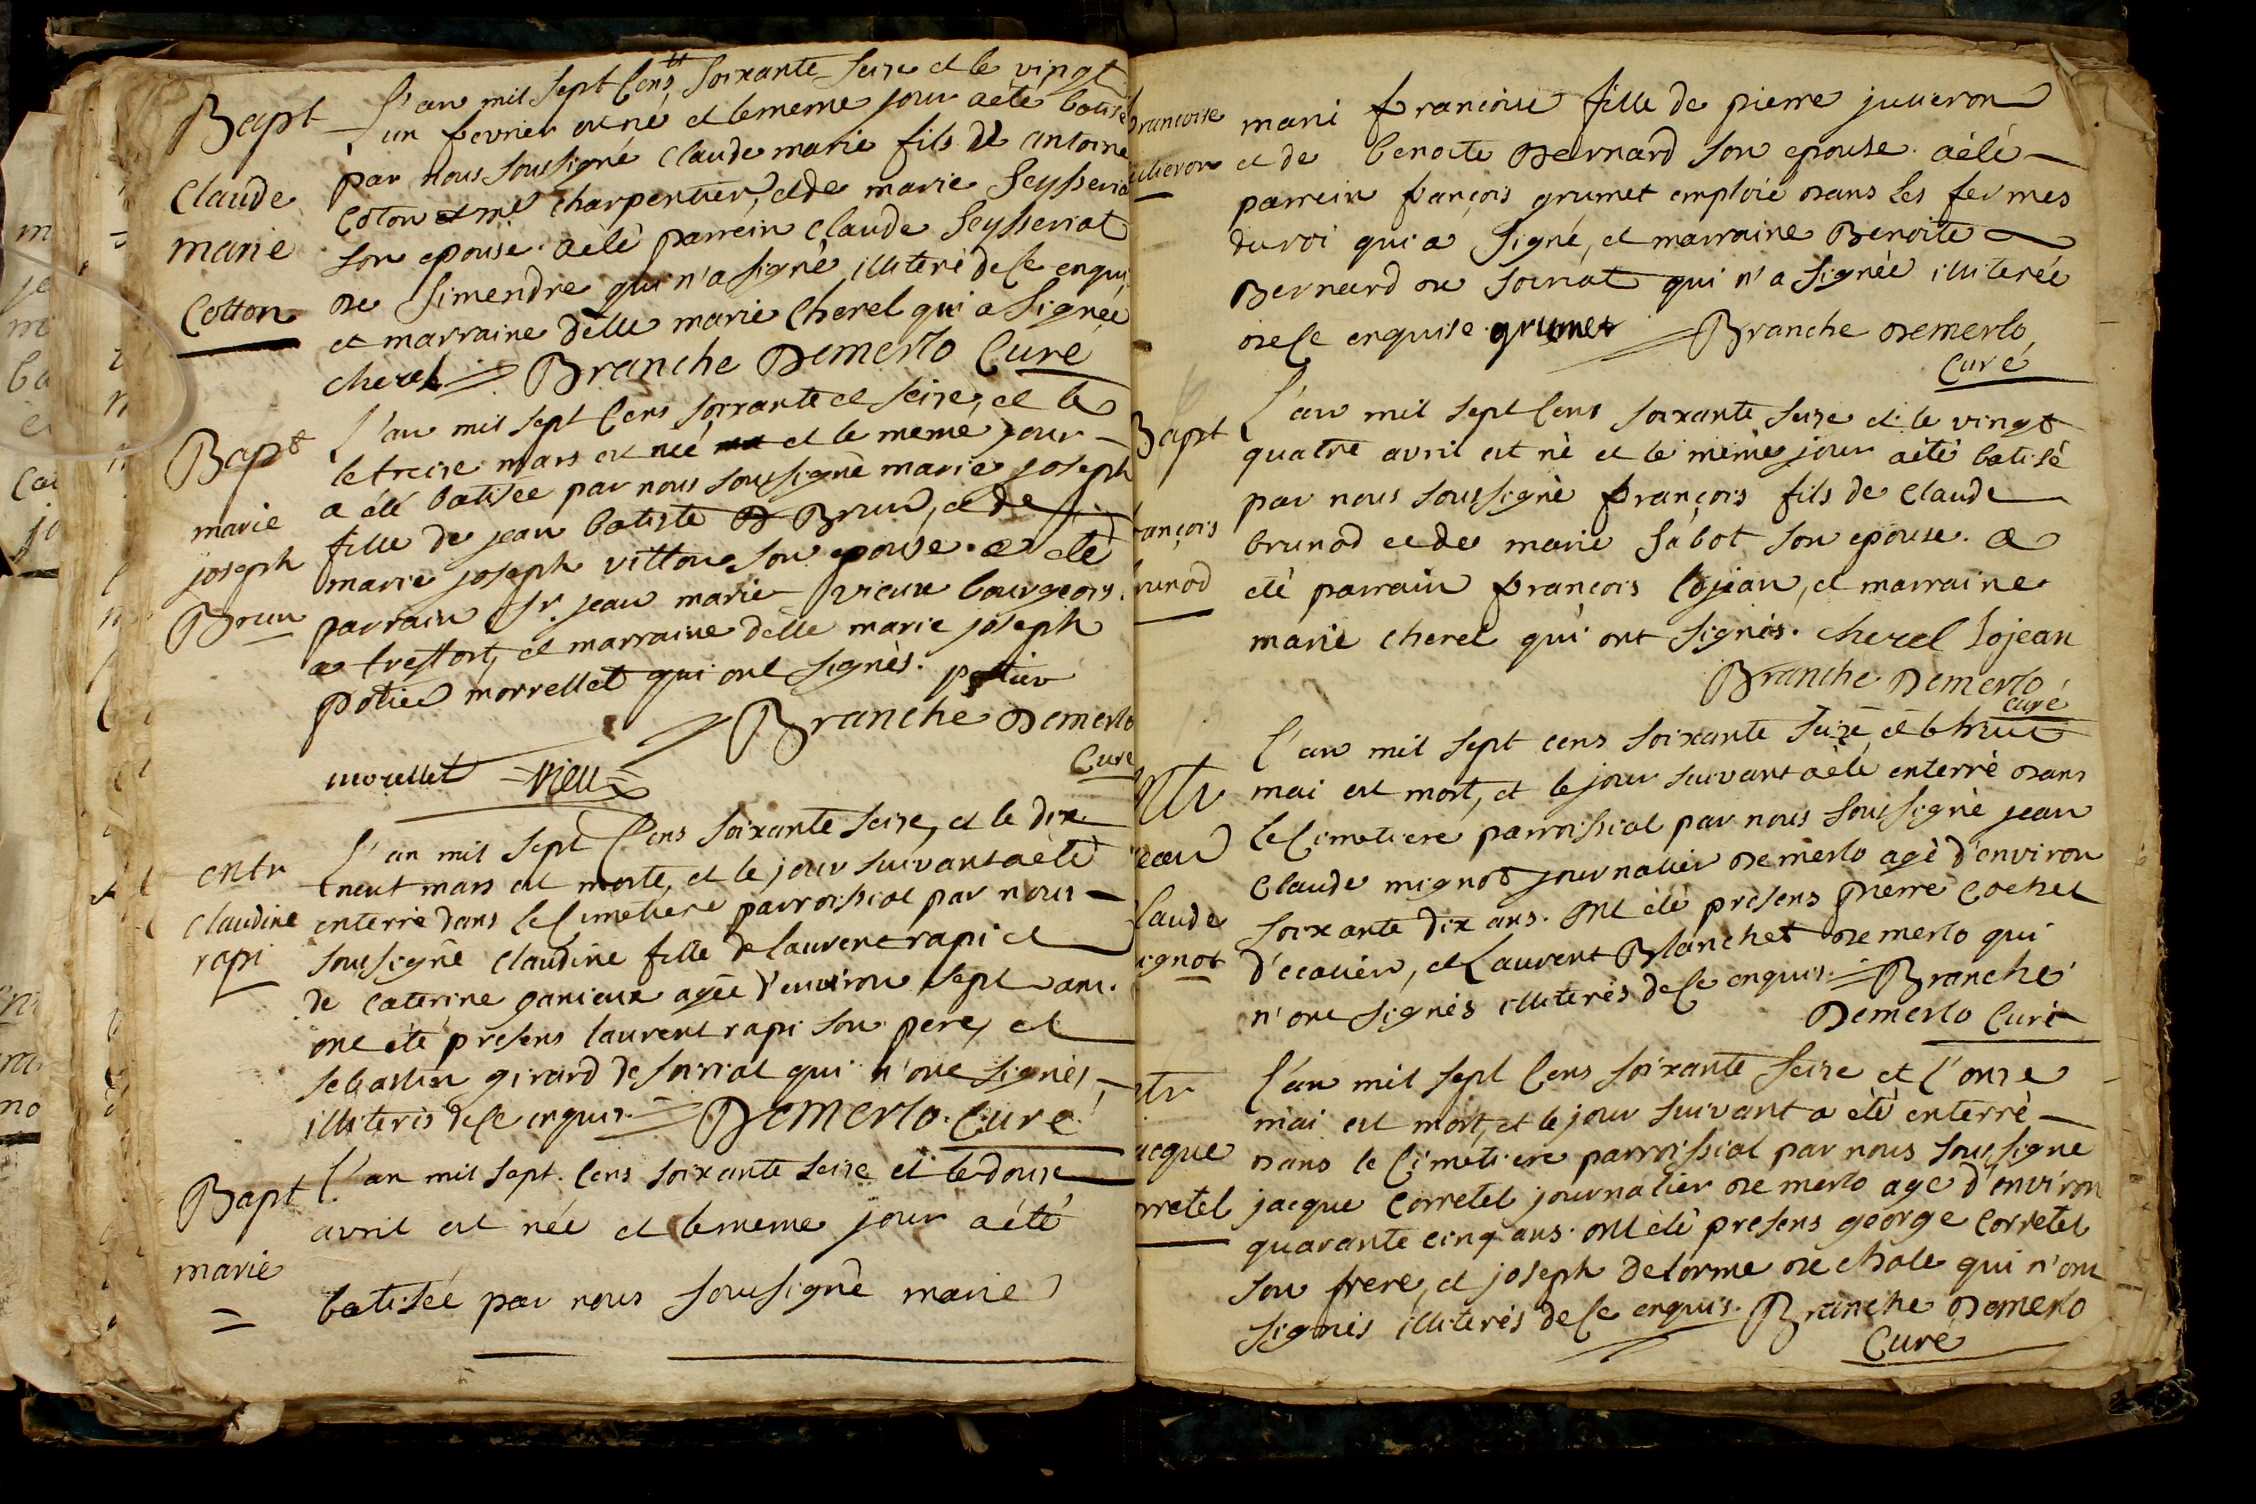 Bapt
Claude
marie
Cotton
L'an mil sept Cens soixante seize et le vingt
un fevrier est né et le meme jour aèté batisé
par nous soussigné Claude marie fils de antoine
Coton charpentier, et de marie Seysseriat
son epouse. aèté parrein Claude Seysseriat
de Simendre qui n'a signé illiteré de ce enquis
et marraine delle marie Cherel qui a signée
cherel Branche Demerlo Curé
Bapt
marie
joseph
Brun
L'an mil sept Cens soixante et seize, et le
le treize mars est née et le meme jour
a été batisée par nous soussigné marie joseph
fille de jean batiste Brun, et de
marie joseph vitton son epouse. a eté
parrain Sr. jean marie vieux bourgeois
a treffort, et marraine delle marie joseph
potier morrellet qui ont signés. potier
Branche Demerlo
Curé
morellet vieu
entr
Claudine
rapi
L'an mil sept Cens soixante seize, et le dix
neuf mars est morte, et le jour suivant aèté
enterré dans le Cimetiere parroissial par nous
soussigné Claudine fille de laurent rapi et
de Caterine ganieux agée d'environ sept ans.
ont été presens laurent rapi son pere, et
sebastien girard de soiriat qui n'ont signés,
illiterés de ce enquis. Demerlo. Curé
Bapt
marie
L'an mil sept. Cens soixante seize et le douze
avril est née et le meme jour aété
batisée par nous soussigné marie
francoise
julieron
mani francoise fille de pierre julieron
et de benoite Bernard son epouse. aèté
parrein françois grumet emploié dans les fermes
du roi qui a signé, et marraine Benoite
Bernard de soiriat qui n'a signée illiterée
de ce enquise grumet Branche Demerlo
Curé
Bapt
françois
brunod
L'an mil sept Cens soixante seize et le vingt
quatre avril est né et le mème jour aèté batisé
par nous soussigné françois fils de Claude
brunod et de marie sabot son epouse. a
eté parrain françois Lojean, et marraine
marie cherel qui ont signés. cherel Lojean
Branche Demerlo
Curé
entr
jean
Claude
mignot
L'an mil sept cens soixante seize et le huit
mai est mort, et le jour suivant aèté enterré dans
le Cimetiere parroissial par nous soussigné jean
Claude mignot journalier de merlo agé d'environ
soixante dix ans. ont eté presens pierre Cochet
d'ecolier, et Laurent Blanchet de merlo qui
n'ont signés illiterés de ce enquis. Branche
Demerlo Curé
entr
jacque
Corretel
L'an mil sept Cens soixante seize et l'onze
mai est mort, et le jour suivant a eté enterré
dans le Cimetiere parroissial par nous soussigné
jacque Corretel journalier de merlo agé d'environ
quarante cinq ans. ont eté presens george Corretel
son frere, et joseph delorme de chale qui n'ont
signés illiterés de ce enquis. Branche Demerlo
Curé